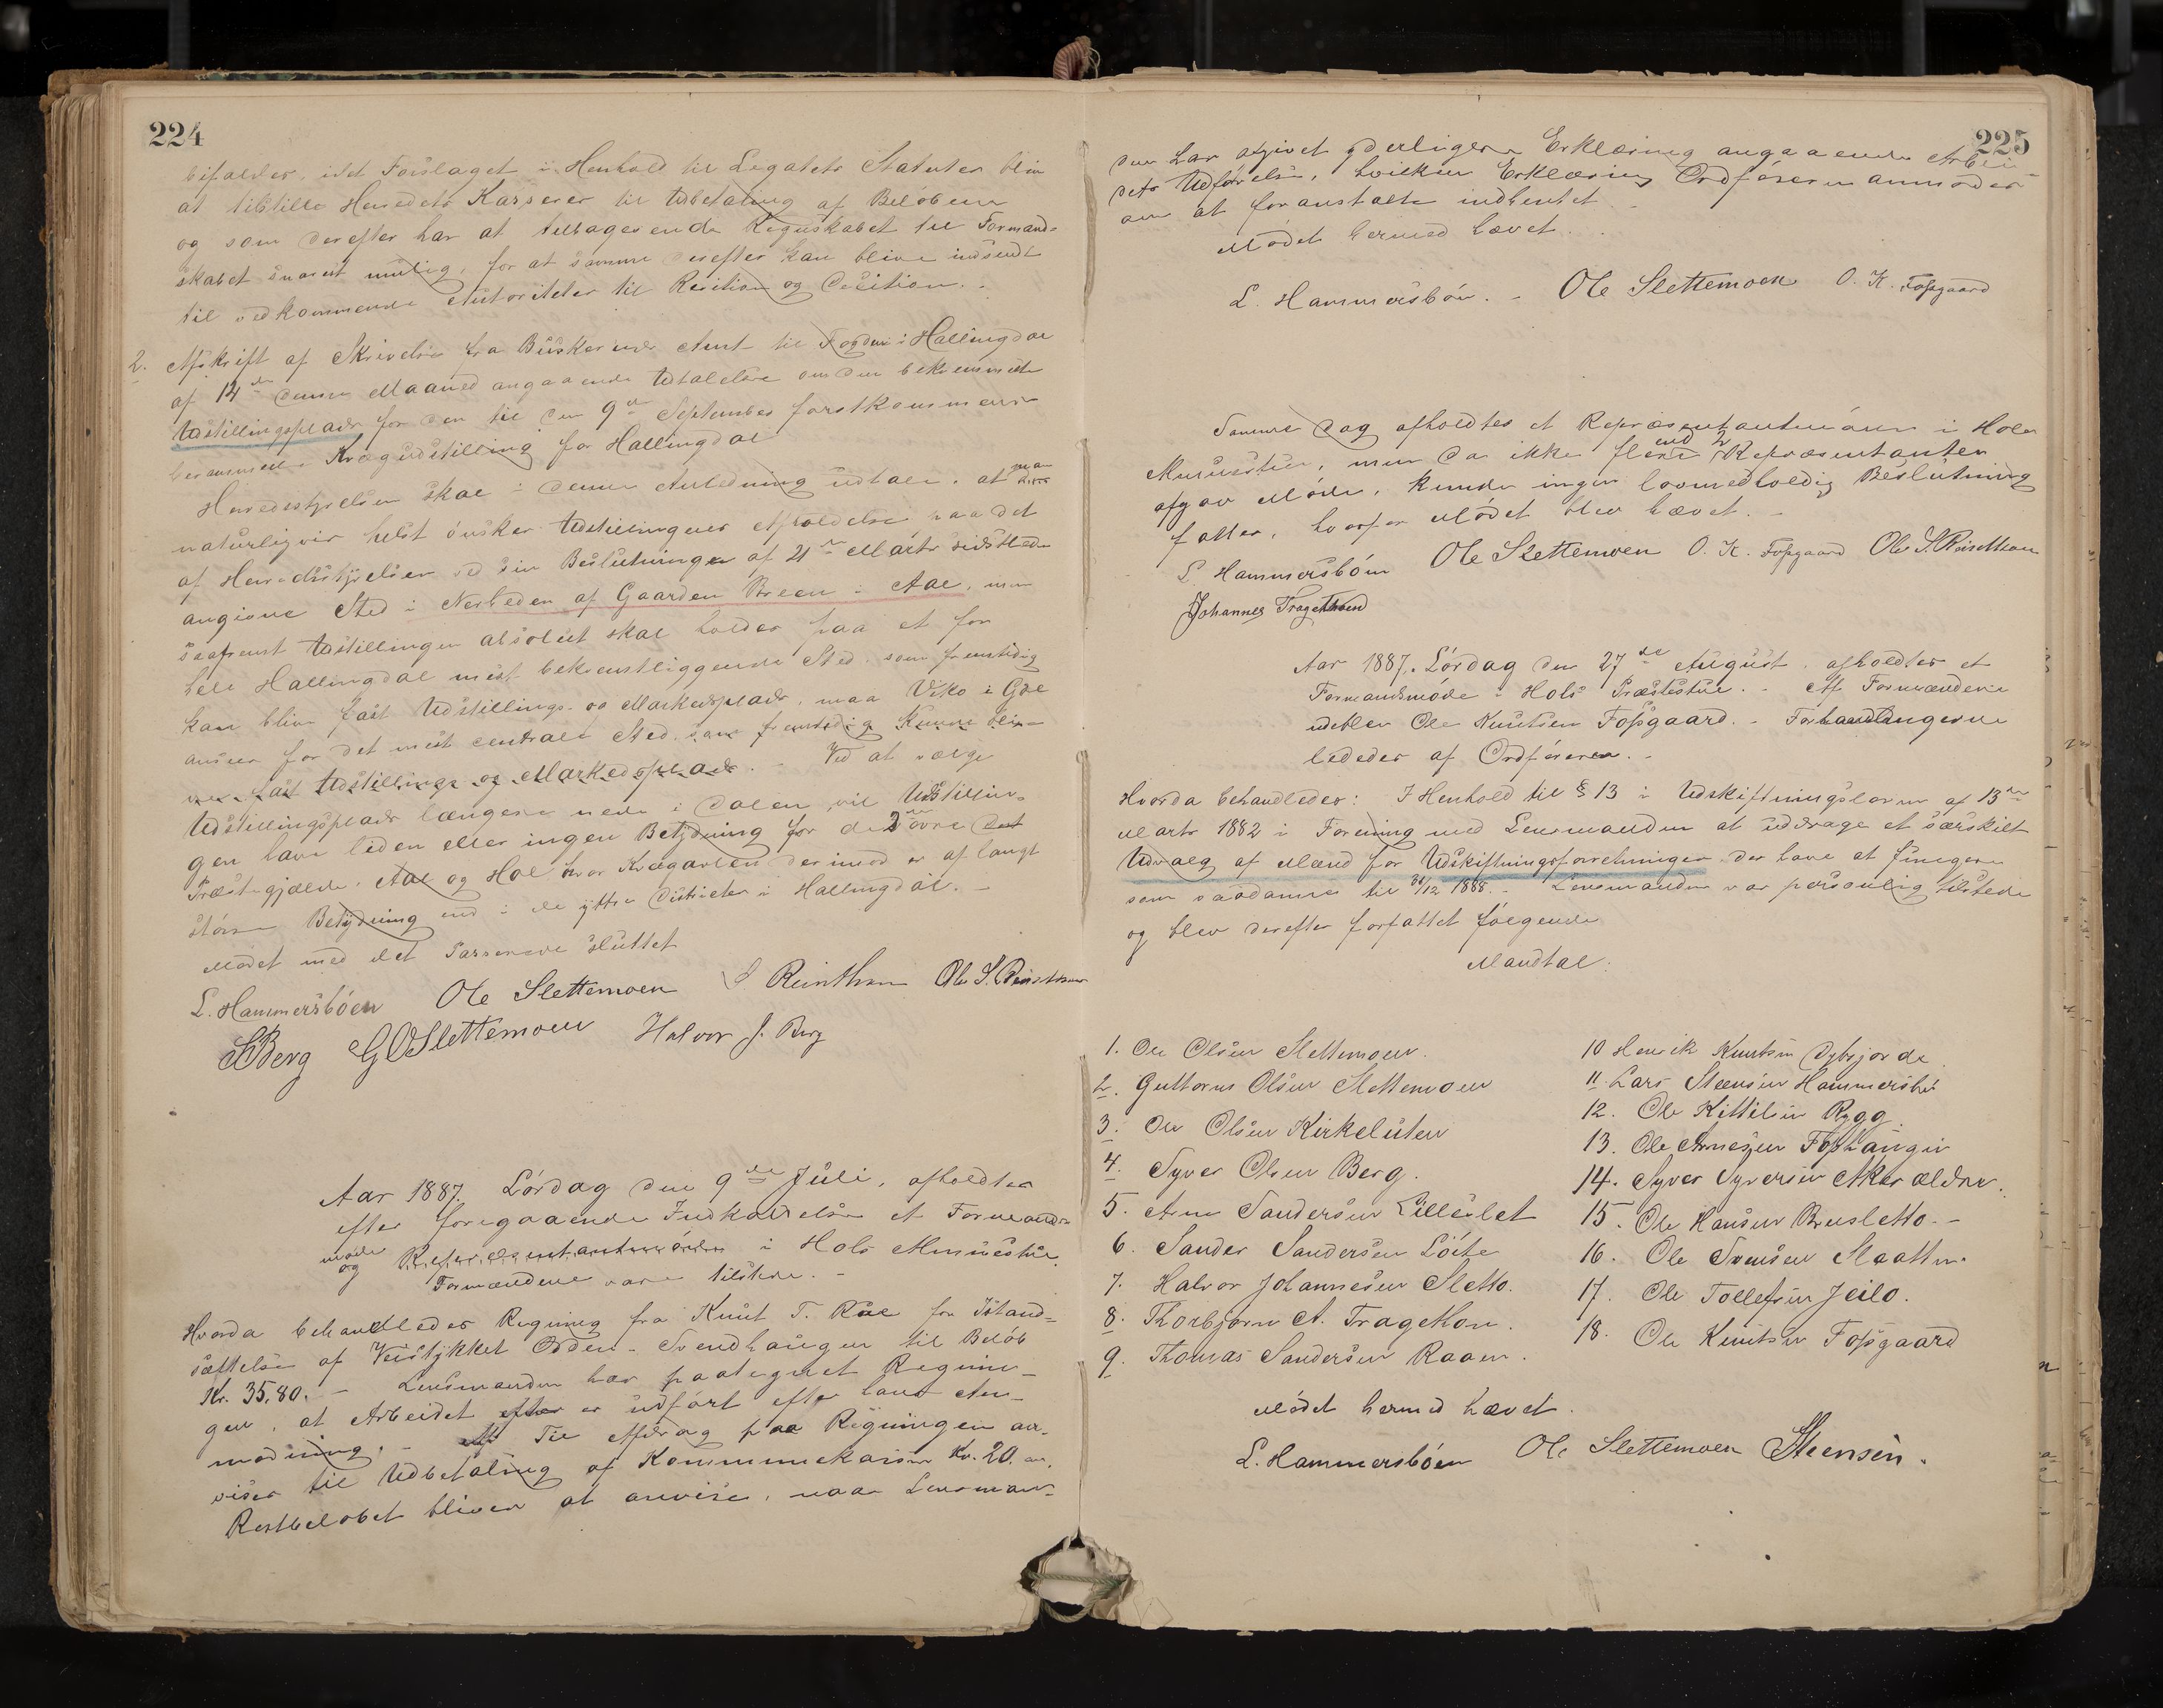 224
bifaldes, idet Forslaget i Henhold til Legatets Statuter bliver
at tilstille Herredets Kasserer til Udbetaling af Beløbene
og som derefter har at tilbagesende Regnskabet til Formand-
skabet snarest mulig, for at samme derefter kan blive indsendt
til vedkommende Autoriteter til Revition og Decition. -
2. Afskrift af Skrivelse fra Buskeruds Amt til Fogden i Hallingdal
af 14de denne Maaned angaaende Udtalelse om den bekvemmeste
Udstillingsplads for den til den 9de September førstkommende
berammede Kvægudstilling for Hallingdal
Herredsstyrelsen skal i denne Anledning udtale, at man
naturligvis helst ønsker Udstillingens Afholdelse paa det
af Herredsstyrelsen ved sin Beslutning af 21de Marts sidstleden
angivne Sted i Nerheden af Gaarden Breen i Aal, men
saafremt Udstillingen absolut skal holdes paa et for
hele Hallingdal mest bekvemtliggende Sted som fremtidig
kan blive fast Udstillings- og Markedsplads, maa Viko i Gol
ansees for det mest centrale Sted som fremtidig kunne blive
fast Udstillings og Markedsplads. - Ved at vælge
Udstillingsplads længere nede i Dalen vil Udstillin-
gen have liden eller ingen Betydning for de 2 øvre
Præstegjælde, Aal og Hol hvor Kvægavlen derimod er af langt
større Betydning end i de ytter Districter i Hallingdal. -
Mødet med det Passerede sluttet
L. Hammersbøen Ole Slettemoen S. Reinthon Ole S. Reinthon
SBerg GOSlettemoen Halvor J. Berg
Aar 1887. Lørdag den 9de Juli, afholdtes
efter foregaaende Indkaldelse et Formands-
møde og Representantmøde i Hols Munnestue.
Formændene vare tilstede. -
Hvorda behandledes Regning fra Knut T. Raa for Istand-
sættelse af Veistykket Odden - Svendhaugen til Beløb
Kr. 35,80. - Lensmanden har paategnet Regnin-
gen, at Arbeidet efter er udført efter hans An-
modning. - Til Afdrag paa Regningen an-
vises til Udbetaling af Kommunekassen Kr. 20. -
Restbeløbet bliver at anvise, naar Lensman-
225
den har afgivet yderligere Erklæring angaaende Arbei-
dets Udførelse, hvilken Erklæring Ordføreren anmodes
om at foranstalte indhentet. -
Mødet hermed hævet. -
L. Hammersbøen. - Ole Slettemoen O. K. Fosgaard
Samme Dag afholdtes et Repræsentantmøde i Hols
Munnestue, men da ikke flere end 2 Repræsentanter
afgav Møde, kunde ingen lovmedholdig Beslutning
fattes, hvorfor Mødet blev hævet. -
L. Hammersbøen Ole Slettemoen O. K. Fosgaard Ole S. Reinthon
Johannes Tragethoen
Aar 1887. Lørdag den 27de August, afholdtes et
Formandsmøde i Hols Præstestue. - Af Formændene
udeblev Ole Knutsen Fosgaard. - Forhandlingerne
lededes af Ordføreren. -
Hvorda behandledes: I Henhold til § 13 i Udskiftningsloven af 13de
Marts 1882 i Forening med Lensmanden at uddrage et særskilt
Udvalg af Mænd for Udskiftningsforretninger der have at fungere
som saadanne til 31/12 1888. - Lensmanden var personlig tilstede
og blev derefter forfattet følgende
Mandtal:
1. Ole Olsen Slettemoen.
2. Guttorm Olsen Slettemoen
3. Ole Olsen Kirkeluten
4. Syver Olsen Berg.
5. Arne Sandersen Lilleslet
6. Sander Sandersen Løite
7. Halvor Johannesen Sletto.
8. Thorbjørn A. Tragethon.
9. Thomas Sandersen Raaen.
10 Henrik Knutsen Dybsjorde
11. Lars Steensen Hammersbø
12. Ole Kittilsen Rygg
13. Ole Arnesen Foshaugen
14. Syver Syversen Aker ældre.
15. Ole Hansen Brusletto. -
16. Ole Svensen Slaatten.
17. Ole Tollefsen Jeilo.
18. Ole Knutsen Fosgaard
Mødet hermed hævet.
L. Hammersbøen Ole Slettemoen Steensen.